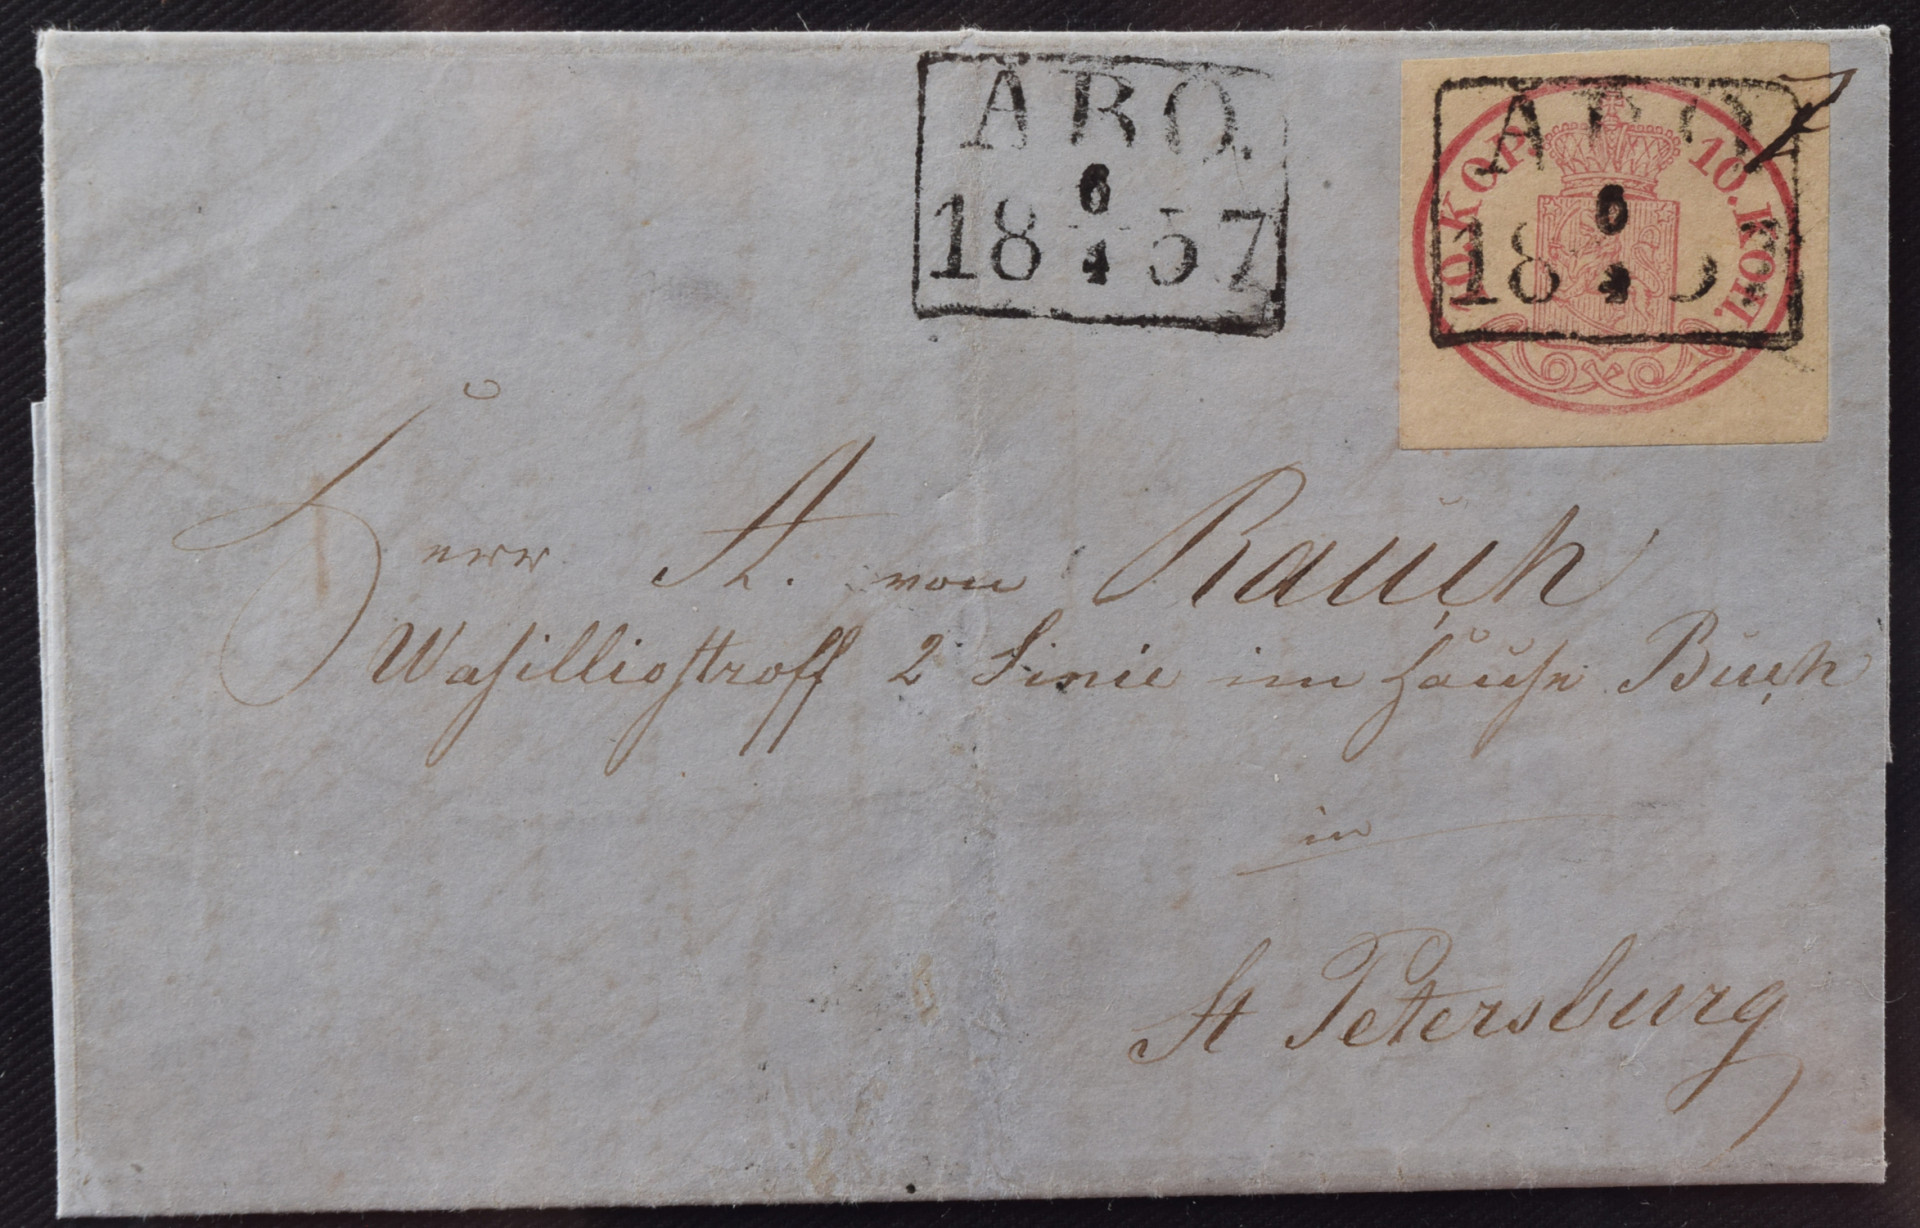 ÅBO.
6
18 57
4
ÅBO
6
18 5
4
10. KOP. 10. КОП.
Herr A. von Rauch
Wasilliostroff 2 Linie im Hause Buch
in
St Petersburg